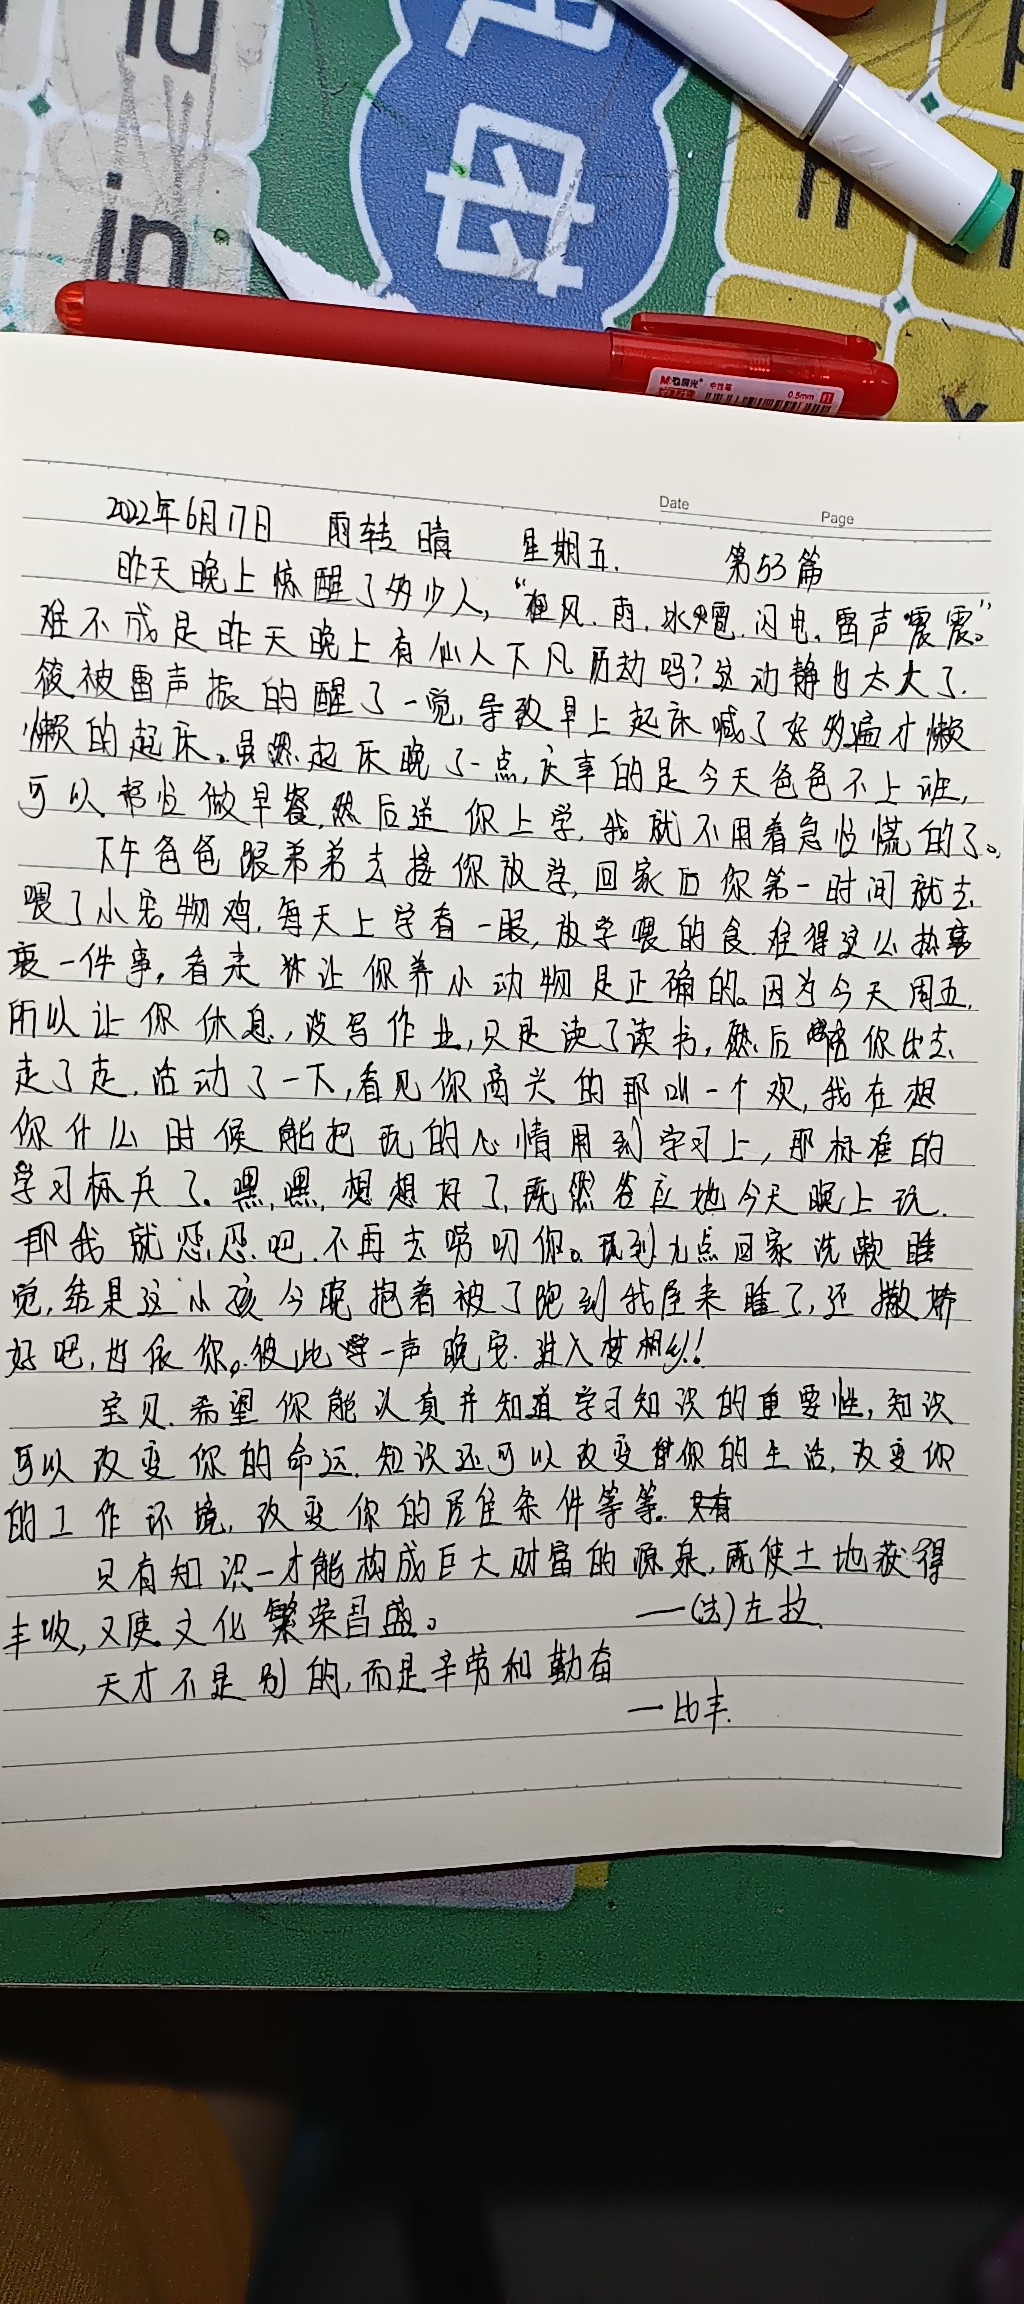 iu
in
母
M&G晨光
中性笔
0.5mm
红
Date
Page
2022年6月17日 雨转晴 星期五. 第53篇
昨天晚上惊醒了多少人，“狂风.雨.冰雹.闪电.雷声震震。”
难不成是昨天晚上有仙人下凡历劫吗？这动静也太大了.
后被雷声振的醒了一觉，导致早上起床喊了好多遍才懒
懒的起床。虽然起床晚了一点，庆幸的是今天爸爸不上班，
可以帮忙做早餐，然后送你上学，我就不用着急忙慌的了。
下午爸爸跟弟弟去接你放学，回家后你第一时间就去
喂了小宠物鸡，每天上学看一眼，放学喂的食.难得这么热衷
衷一件事，看来让你养小动物是正确的。因为今天周五，
所以让你休息，没写作业，只是读了读书，然后陪你出去
走了走，活动了一下，看见你高兴的那叫一个欢，我在想
你什么时候能把玩的心情用到学习上，那标准的
学习标兵了。嘿，嘿，想想好了，既然答应她今天晚上玩.
那我就忍忍吧.不再去唠叨你。玩到九点回家洗漱睡
觉，结果这小孩今晚抱着被子跑到我屋来睡了，还撒娇
好吧，也依你。彼此一声晚安.进入梦相乡！
宝贝.希望你能认真并知道学习知识的重要性，知识
可以改变你的命运.知识还可以改变你的生活，改变你
的工作环境，改变你的居住条件等等。
只有知识—才能构成巨大财富的源泉，既使土地获得
丰收，又使文化繁荣昌盛。 ——（法）左拉
天才不是别的，而是辛劳和勤奋
—比丰.